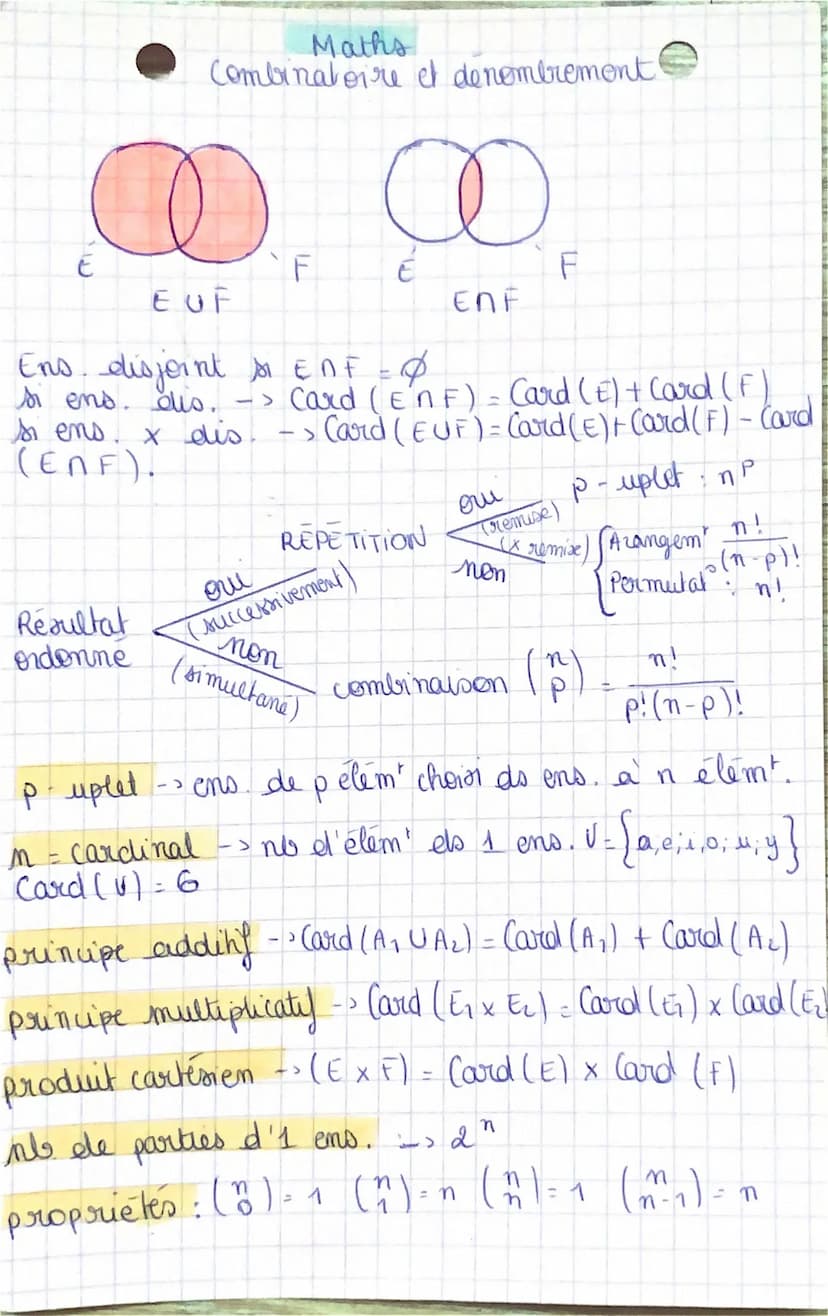 Maths
Combinatoire et dénombrement
E F E F
E ∪ F E ∩ F
Ens. disjoint si E ∩ F = ∅
si ens. dis. -> Card (E ∩ F) = Card (E) + Card (F)
si ens. x dis. -> Card (E ∪ F) = Card(E) + Card(F) - Card
(E ∩ F).
RÉPÉTITION oui (remise) p-uplet : n^p
non (x remise) { Arangem^t n!/(n-p)!
Permutat° : n!
Résultat ordonné
oui (successivement)
non (simultané) combinaison (n p) = n!/(p!(n-p)!)
p-uplet -> ens. de p élém^t choisi ds ens. à n élém^t.
n = cardinal -> nb d'élém^t ds 1 ens. V = {a,e;i,o;u;y}
Card(V) = 6
principe additif -> Card (A₁ ∪ A₂) = Card (A₁) + Card (A₂)
principe multiplicatif -> Card (E₁ x E₂) = Card (E₁) x Card (E₂)
produit cartésien -> (E x F) = Card (E) x Card (F)
nb de parties d'1 ens. -> 2^n
propriétés : (n 0) = 1 (n 1) = n (n n) = 1 (n n-1) = n